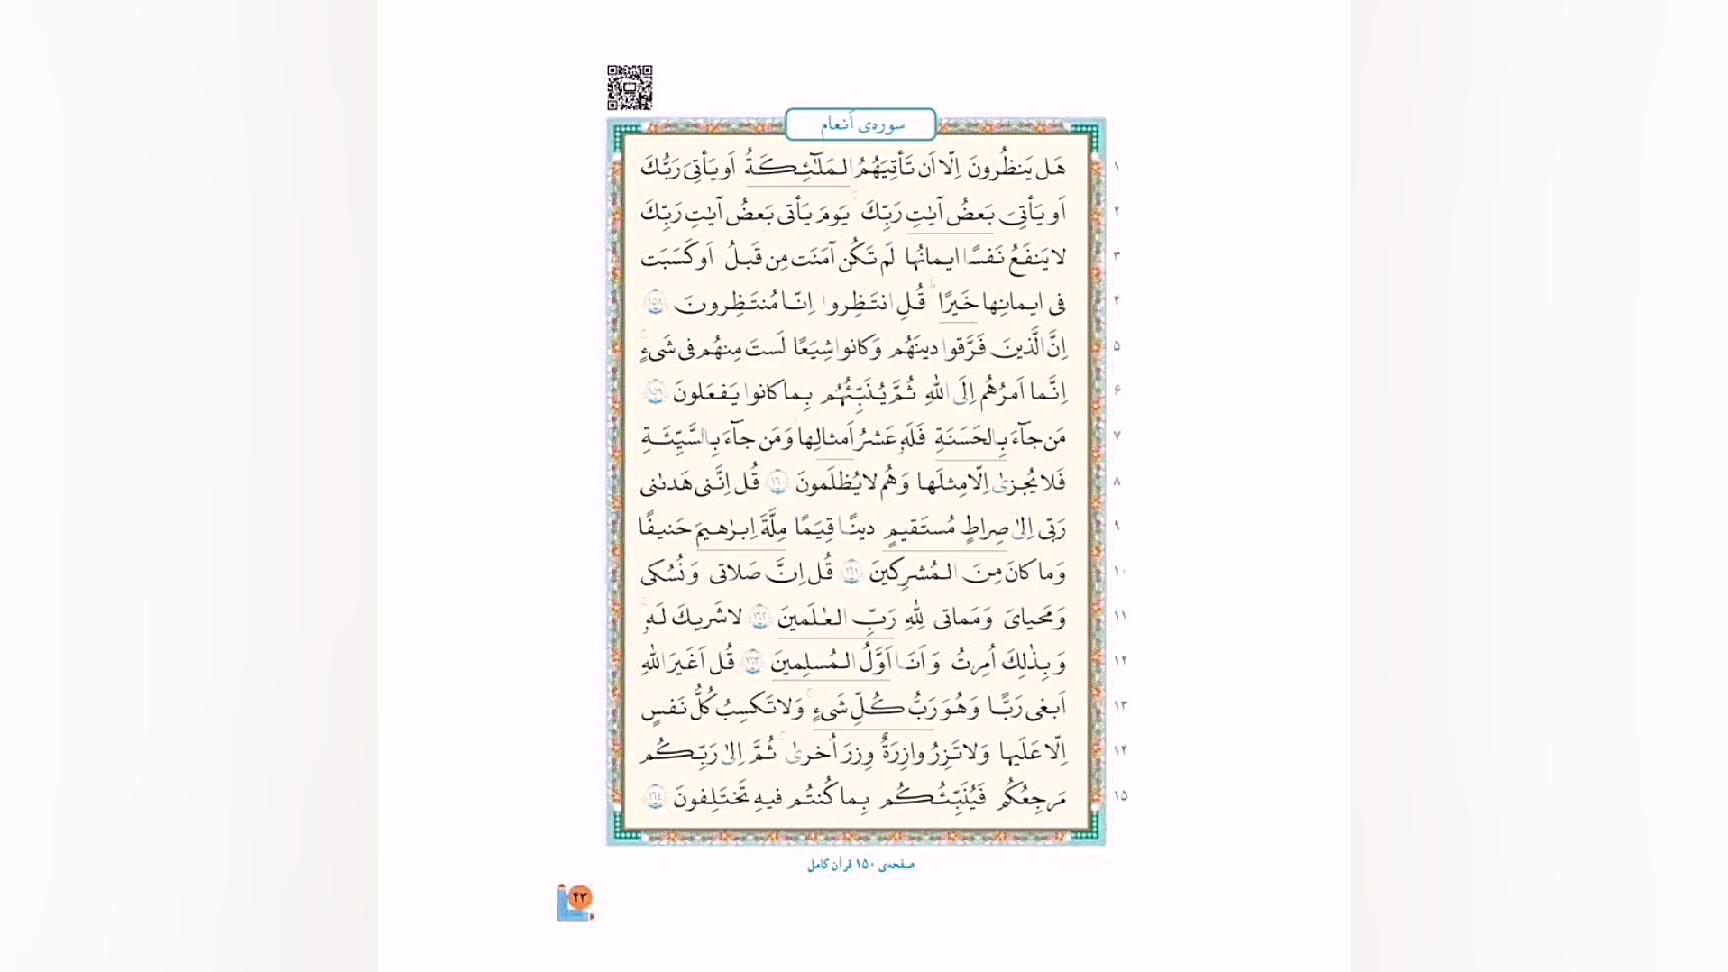 سوره‌ی اَنعام
۱
هَل يَنظُرونَ اِلّا اَن تَأتِيَهُمُ المَلٰٓئِكَةُ اَو يَأتِیَ رَبُّكَ
۲
اَو يَأتِیَ بَعضُ آياتِ رَبِّكَ يَومَ يَأتی بَعضُ آياتِ رَبِّكَ
۳
لا يَنفَعُ نَفسًا ايمانُها لَم تَكُن آمَنَت مِن قَبلُ اَو كَسَبَت
۴
فی ايمانِها خَيرًا قُلِ انتَظِروا اِنّا مُنتَظِرونَ ١٥٨
۵
اِنَّ الَّذينَ فَرَّقوا دينَهُم وَ كانوا شِيَعًا لَستَ مِنهُم فی شَیءٍ
۶
اِنَّما اَمرُهُم اِلَی اللهِ ثُمَّ يُنَبِّئُهُم بِما كانوا يَفعَلونَ ١٥٩
۷
مَن جآءَ بِالحَسَنَةِ فَلَهٗ عَشرُ اَمثالِها وَ مَن جآءَ بِالسَّيِّئَةِ
۸
فَلا يُجزیٰ اِلّا مِثلَها وَ هُم لا يُظلَمونَ ١٦٠ قُل اِنَّنی هَدٰىنی
۹
رَبّی اِلیٰ صِراطٍ مُستَقيمٍ دينًا قِيَمًا مِلَّةَ اِبرٰهيمَ حَنيفًا
۱۰
وَ ما كانَ مِنَ المُشرِكينَ ١٦١ قُل اِنَّ صَلاتی وَ نُسُكی
۱۱
وَ مَحيایَ وَ مَماتی لِلّٰهِ رَبِّ العٰلَمينَ ١٦٢ لا شَريكَ لَهٗ
۱۲
وَ بِذٰلِكَ اُمِرتُ وَ اَنَا اَوَّلُ المُسلِمينَ ١٦٣ قُل اَغَيرَ اللهِ
۱۳
اَبغی رَبًّا وَ هُوَ رَبُّ كُلِّ شَیءٍ وَ لا تَكسِبُ كُلُّ نَفسٍ
۱۴
اِلّا عَلَيها وَ لا تَزِرُ وازِرَةٌ وِزرَ اُخریٰ ثُمَّ اِلیٰ رَبِّكُم
۱۵
مَرجِعُكُم فَيُنَبِّئُكُم بِما كُنتُم فيهِ تَختَلِفونَ ١٦٤
صفحه‌ی ۱۵۰ قرآن کامل
۴۳